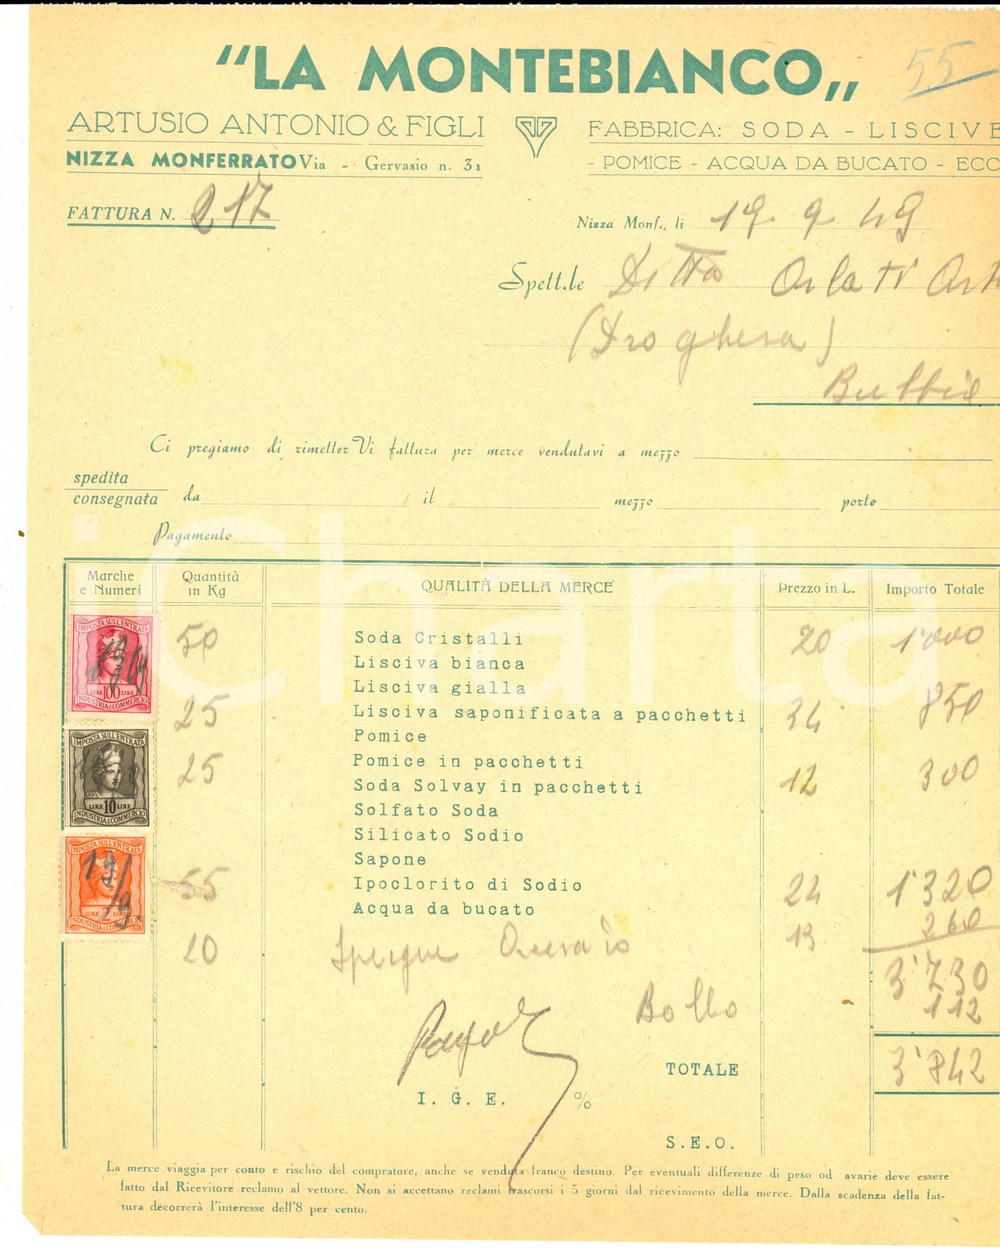 "LA MONTEBIANCO„
55
ARTUSIO ANTONIO & FIGLI
FABBRICA: SODA - LISCIVE
NIZZA MONFERRATO Via - Gervasio n. 31
- POMICE - ACQUA DA BUCATO - ECC
FATTURA N. 217
Nizza Monf., li 19. 9. 49
Spett.le Ditta Orlati
(Drogheria)
Bubbio
Ci pregiamo di rimetterVi fattura per merce vendutavi a mezzo
spedita
consegnata da il mezzo porto
Pagamento
Marche e Numeri Quantità in Kg QUALITÀ DELLA MERCE Prezzo in L. Importo Totale
50 Soda Cristalli 20 1'000
Lisciva bianca
Lisciva gialla
25 Lisciva saponificata a pacchetti 34 850
Pomice
25 Pomice in pacchetti 12 300
Soda Solvay in pacchetti
Solfato Soda
Silicato Sodio
Sapone
55 Ipoclorito di Sodio 24 1'320
Acqua da bucato
20 13 260
3'730
Bollo 112
TOTALE 3'842
I. G. E. %
S.E.O.
IMPOSTA SULL'ENTRATA
LIRE 100 LIRE
INDUSTRIA E COMMERCIO
IMPOSTA SULL'ENTRATA
LIRE 10 LIRE
INDUSTRIA E COMMERCIO
IMPOSTA SULL'ENTRATA
19/9.
LIRE 2 LIRE
INDUSTRIA E COMMERCIO
La merce viaggia per conto e rischio del compratore, anche se venduta franco destino. Per eventuali differenze di peso od avarie deve essere
fatto dal Ricevitore reclamo al vettore. Non si accettano reclami trascorsi i 5 giorni dal ricevimento della merce. Dalla scadenza della fat-
tura decorrerà l'interesse dell'8 per cento.
iCharta